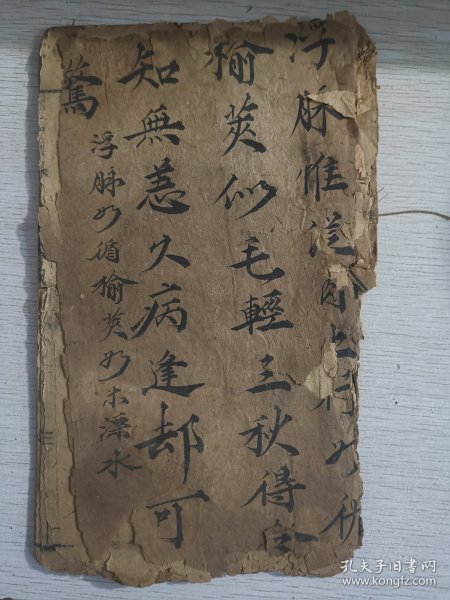 浮脉惟從肉上行如循
榆莢似毛輕三秋得令
知無恙久病逢却可
驚
浮脉如循榆莢如木漂水
孔夫子旧书网
www.kongfz.com